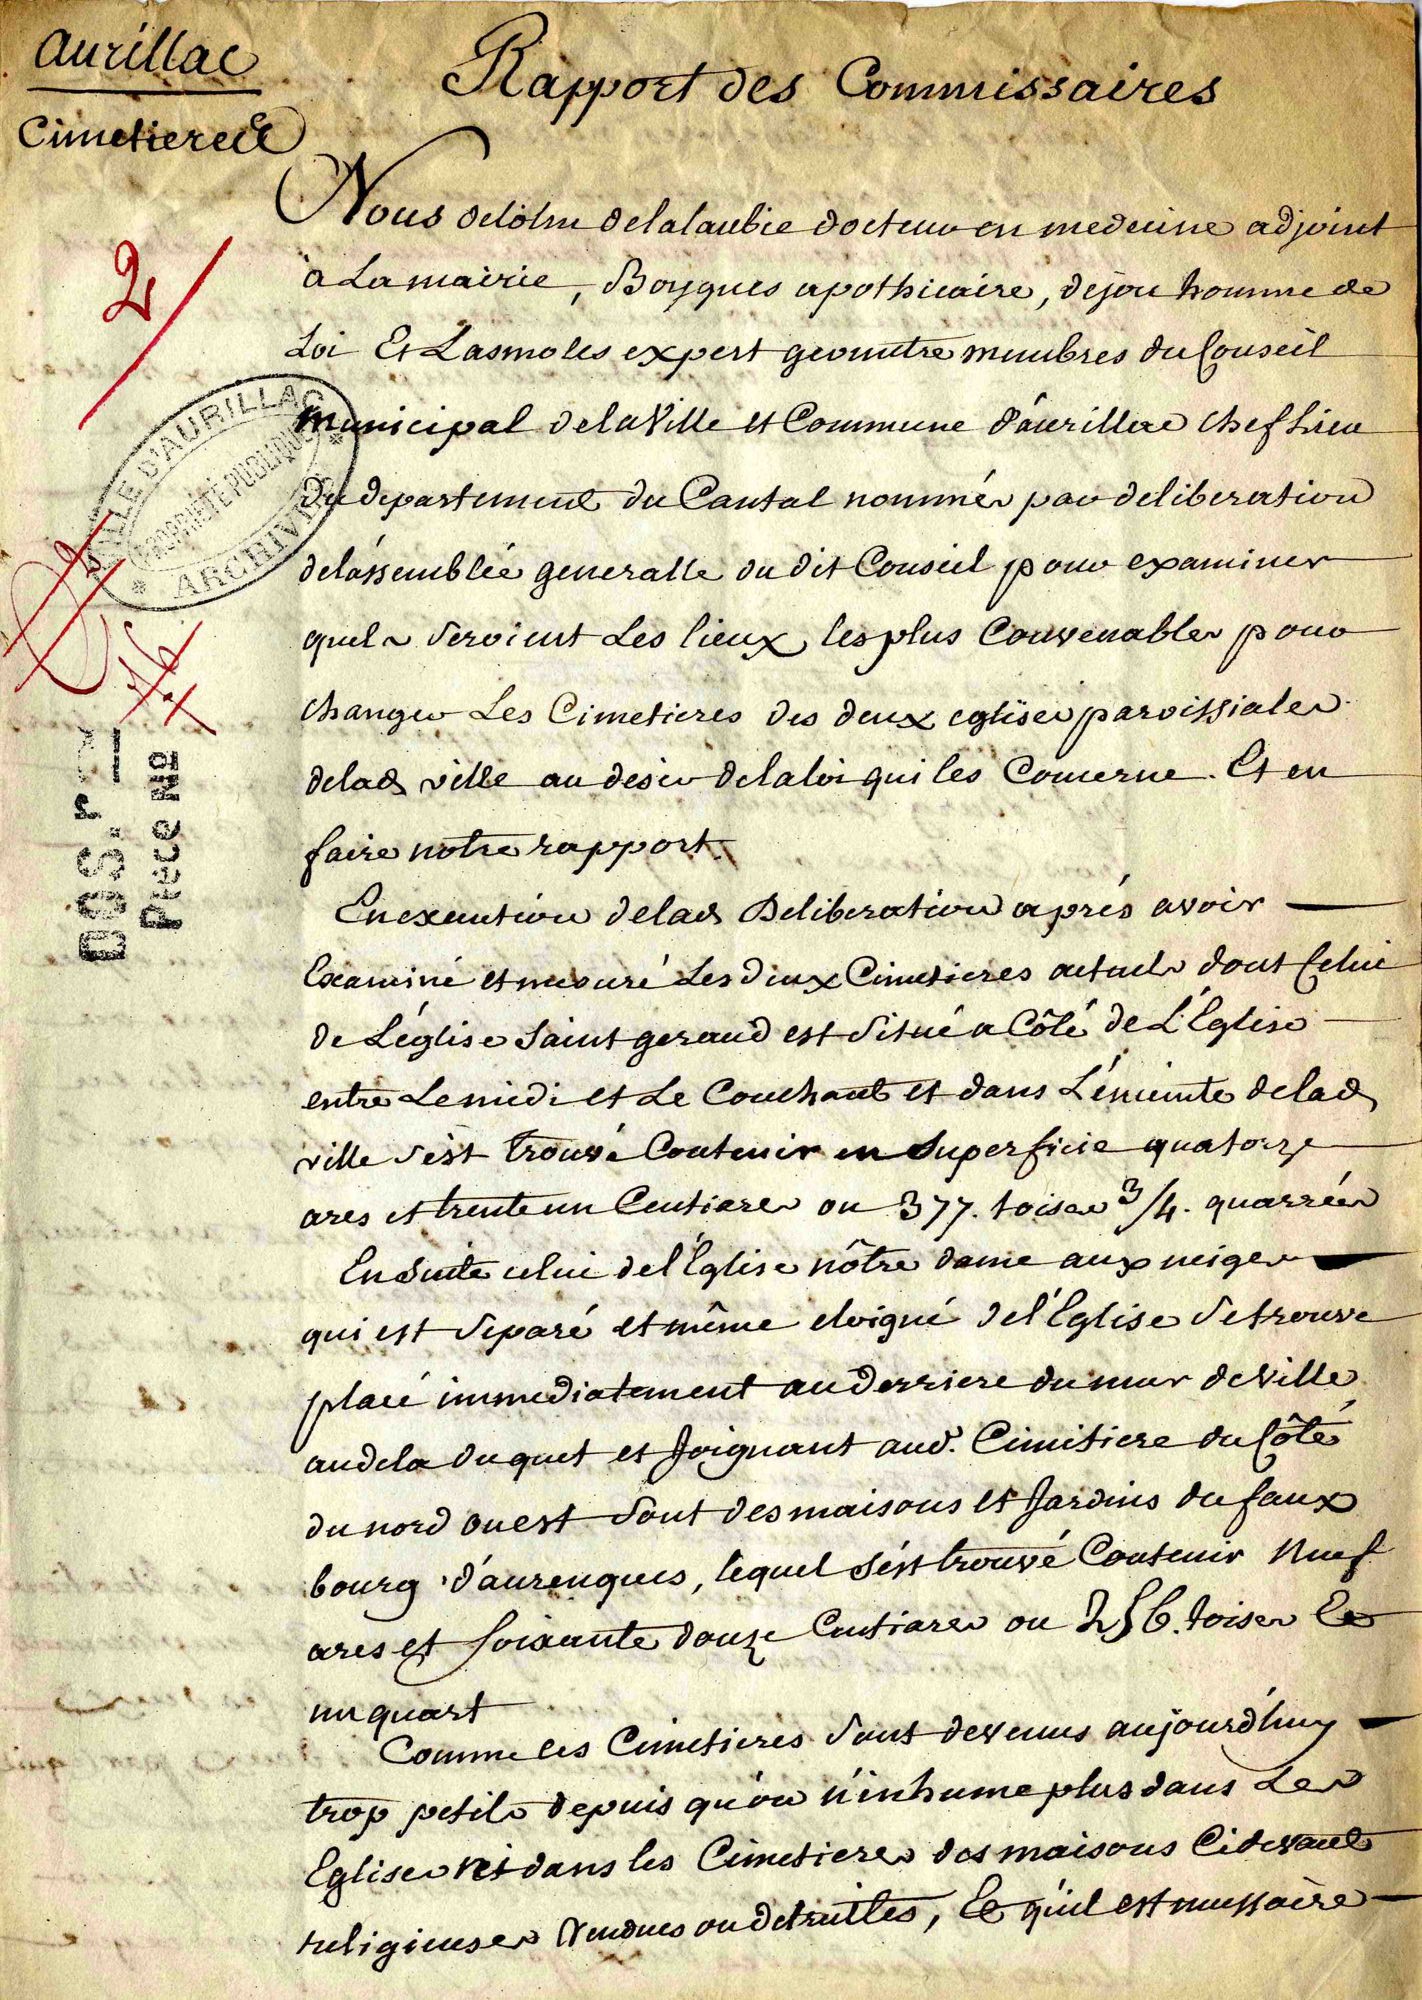 Aurillac
Cimetiere
Rapport des Commissaires
Nous delolm delalaubie docteur en medecine adjoint
a La mairie, Boygues apothicaire, dejou homme de
Loi Et Lasmoles expert geometre membres du Conseil
Municipal de la Ville et Commune d'aurillac chef Lieu
du departement du Cantal nommés par deliberation
de l'assemblée generalle du dit Conseil pour examiner
quels seroient Les lieux les plus Convenables pour
changer Les Cimetieres des deux eglises paroissiales
de lad. ville au desir de la loi qui les Concerne. Et en
faire notre rapport.
En execution de lad. Deliberation après avoir
Examiné et mesuré Les deux Cimetieres actuels dont Celui
de L'église Saint geraud est situé a Côté de L'Eglise
entre Le midi et Le Couchant et dans L'enceinte de lad.
ville s'est trouvé Contenir en Superficie quatorze
ares et trente un Centiares ou 377. toises 3/4. quarrées
En Suite celui de l'Eglise nôtre dame aux neiges
qui est separé et même eloigné de l'Eglise se trouve
placé immediatement au derriere du mur de ville
au dela du guet et Joignant aud. Cimitiere du Côté
du nord ouest sont des maisons et Jardins du faux
bourg d'aurenques, lequel s'est trouvé Contenir Neuf
ares et soixante douze Centiares ou 256. toises Et
un quart
Comme les Cimetieres sont devenus aujourd'huy
trop petits depuis qu'on n'inhume plus dans Les
Eglises ni dans les Cimetieres des maisons Cidevant
religieuses Vendues ou detruittes, Et qu'il est necessaire
2
VILLE D'AURILLAC
PROPRIÉTÉ PUBLIQUE
ARCHIVES
DOS.r
Pièce No